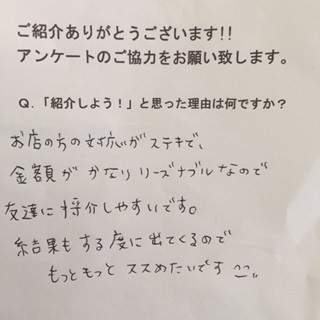 ご紹介ありがとうございます!!
アンケートのご協力をお願い致します。
Q.「紹介しよう！」と思った理由は何ですか？
お店の方の対応がステキで、
金額がかなりリーズナブルなので
友達に紹介しやすいです。
結果もする度に出てくるので
もっともっとススめたいです